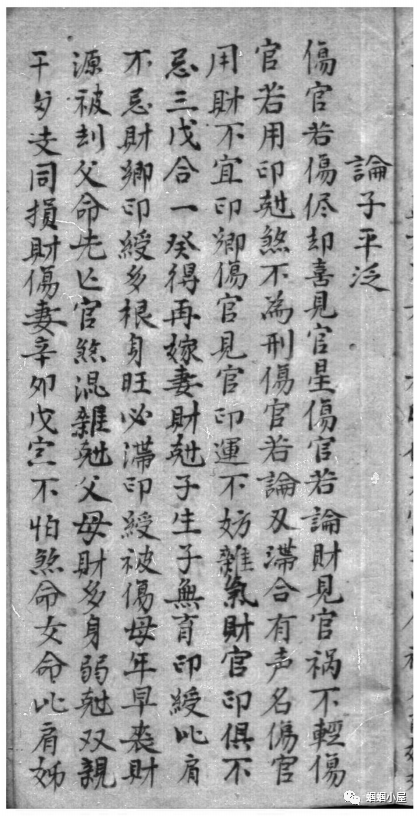 論子平泛
傷官若傷侭却喜見官星傷官若論財見官禍不輕傷
官若用印尅煞不為刑傷官若論刄滯合有声名傷官
用財不宜印鄉傷官見官印運不妨雜氣財官印俱不
忌三戊合一癸得再嫁妻財尅子生子無育印綬比肩
不忌財鄉印綬多根身旺必滯印綬被傷母年早喪財
源被刦父命先亡官煞混雜尅父母財多身弱尅双親
干與支同損財傷妻辛卯戊寅不怕煞命女命比肩姊
蝈蝈小屋